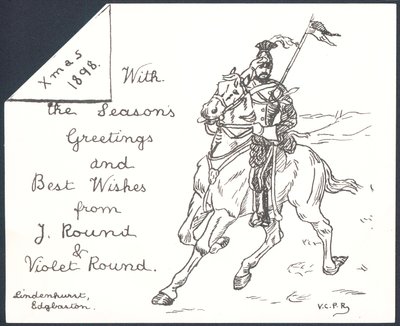 Xmas
1898.
With
the Season's
Greetings
and
Best Wishes
from
J. Round
&
Violet Round.
Lindenhurst,
Edgbaston.
V.C.P.R.